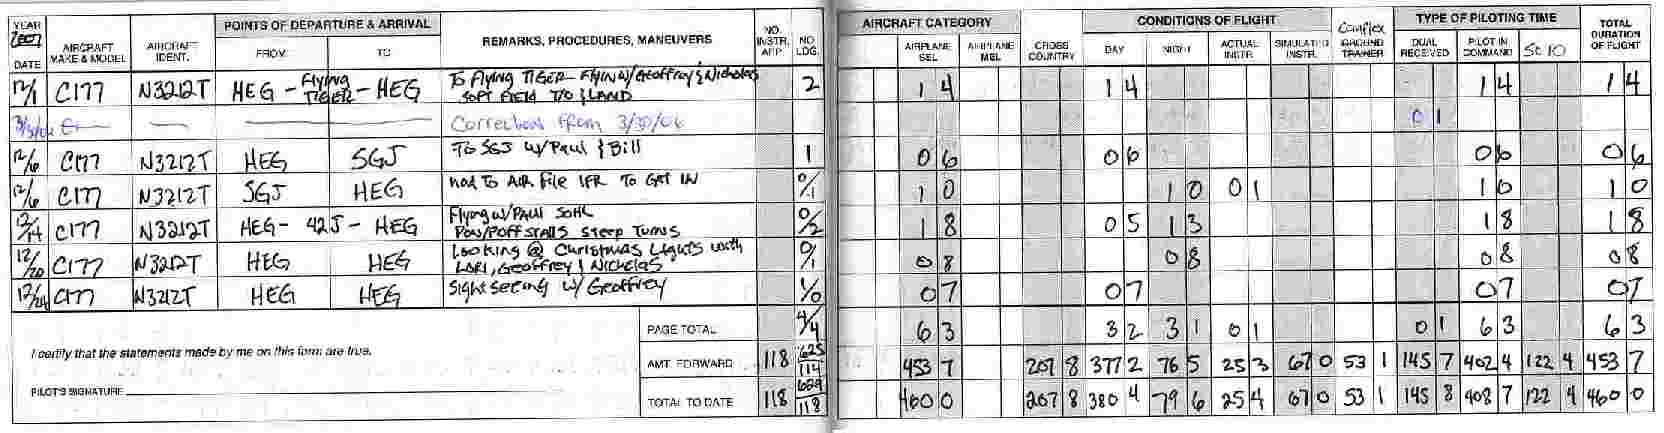 YEAR 2007 POINTS OF DEPARTURE & ARRIVAL NO. INSTR. APP. NO LDG. AIRCRAFT CATEGORY CONDITIONS OF FLIGHT Complex TYPE OF PILOTING TIME TOTAL DURATION OF FLIGHT
DATE AIRCRAFT MAKE & MODEL AIRCRAFT IDENT. FROM TO REMARKS, PROCEDURES, MANEUVERS AIRPLANE SEL AIRPLANE MEL CROSS COUNTRY DAY NIGHT ACTUAL INSTR. SIMULATED INSTR. GROUND TRAINER DUAL RECEIVED PILOT IN COMMAND SOLO
12/1 C177 N3212T HEG - Flying TIGER - HEG To Flying TIGER FlyIN w/Geoffrey & Nicholas 2 1 4 1 4 1 4 1 4
SOFT FIELD T/O & LAND
3/30/06 Correction from 3/30/06 0 1
12/6 C177 N3212T HEG SGJ To SGJ w/ Paul & Bill 1 0 6 0 6 0 6 0 6
12/6 C177 N3212T SGJ HEG Had To Air File IFR To GET IN 0/1 1 0 1 0 0 1 1 0 1 0
12/14 C177 N3212T HEG - 42J - HEG Flying w/ PAUL SOHL 0/2 1 8 0 5 1 3 1 8 1 8
POW/POFF STALLS Steep Turns
12/20 C177 N3212T HEG HEG Looking @ Christmas Lights with 0/1 0 8 0 8 0 8 0 8
LORI, Geoffrey & Nicholas
12/24 C177 N3212T HEG HEG Sight seeing w/ Geoffrey 1/0 0 7 0 7 0 7 0 7
PAGE TOTAL 4/4 6 3 3 2 3 1 0 1 0 1 6 3 6 3
I certify that the statements made by me on this form are true.
AMT. FORWARD 118 625/114 453 7 207 8 377 2 76 5 25 3 67 0 53 1 145 7 402 4 122 4 453 7
PILOT'S SIGNATURE
TOTAL TO DATE 118 629/118 460 0 207 8 380 4 79 6 25 4 67 0 53 1 145 8 408 7 122 4 460 0